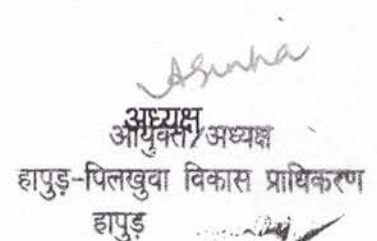 ASinha
अध्यक्ष
आयुक्त/अध्यक्ष
हापुड़-पिलखुवा विकास प्राधिकरण
हापुड़